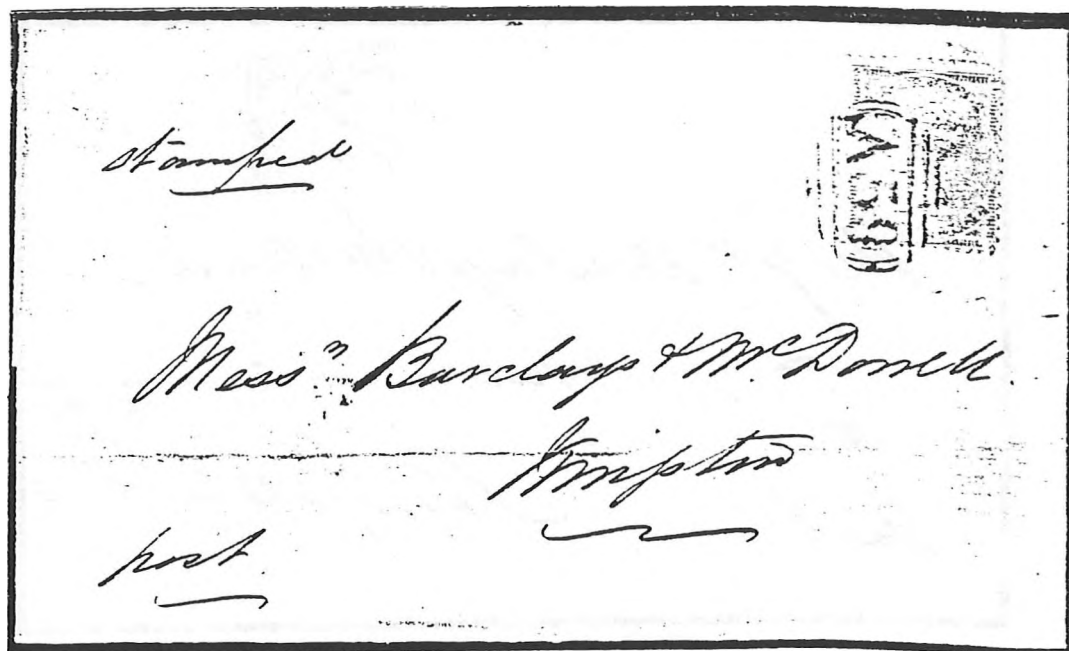 stamped
Mess.rs Barclays & McDowell.
Kingston
post